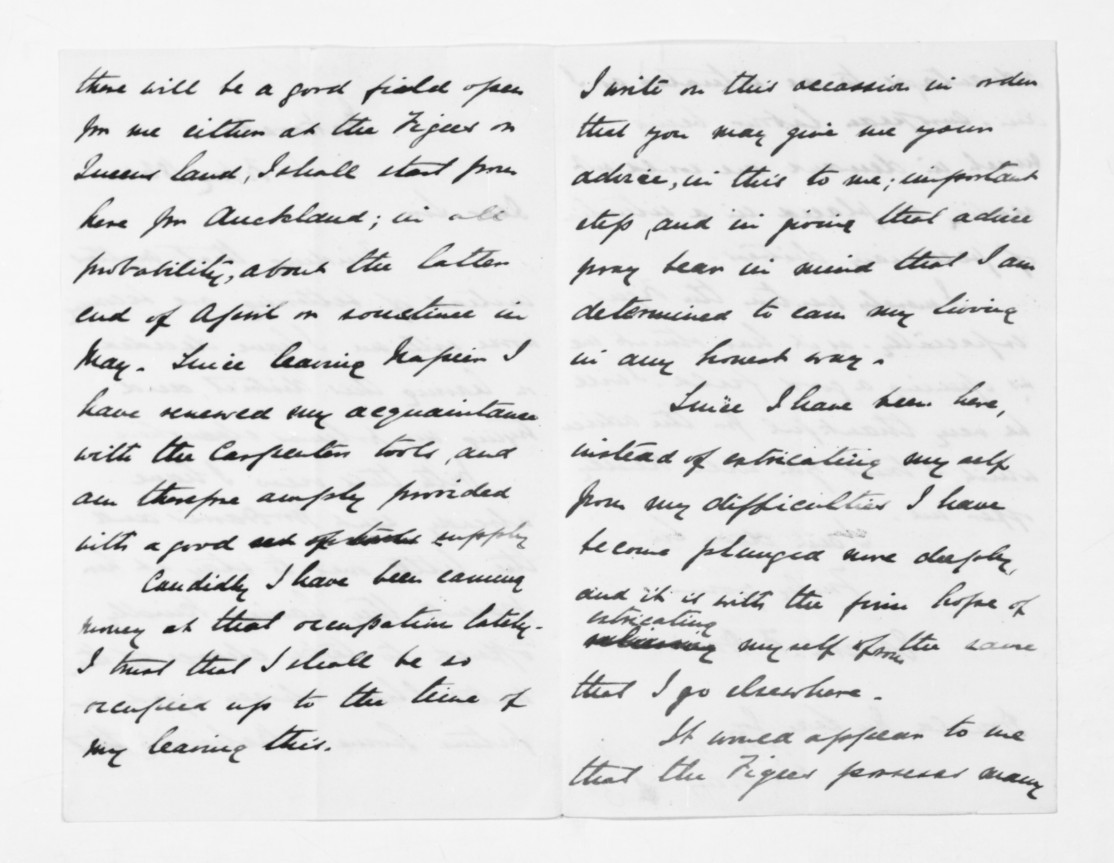 there will be a good field open
for me either at the Figees or
Queens land, I shall start from
here for Auckland; in all
probability, about the latter
end of April or sometime in
May. Since leaving Napier I
have renewed my acquaintance
with the Carpenters tools, and
am therefore amply provided
with a good supply
Candidly I have been earning
money at that occupation lately.
I trust that I shall be so
occupied up to the time of
my leaving this.
I write on this occassion in order
that you may give me your
advice, in this to me; important
step, and in giving that advice
pray bear in mind that I am
determined to earn my living
in any honest way.
Since I have been here,
instead of extricating my self
from my difficulties I have
become plunged more deeply,
and it is with the firm hope of
extricating
my self from the same
that I go elsewhere.
It would appear to me
that the Figees possesses many